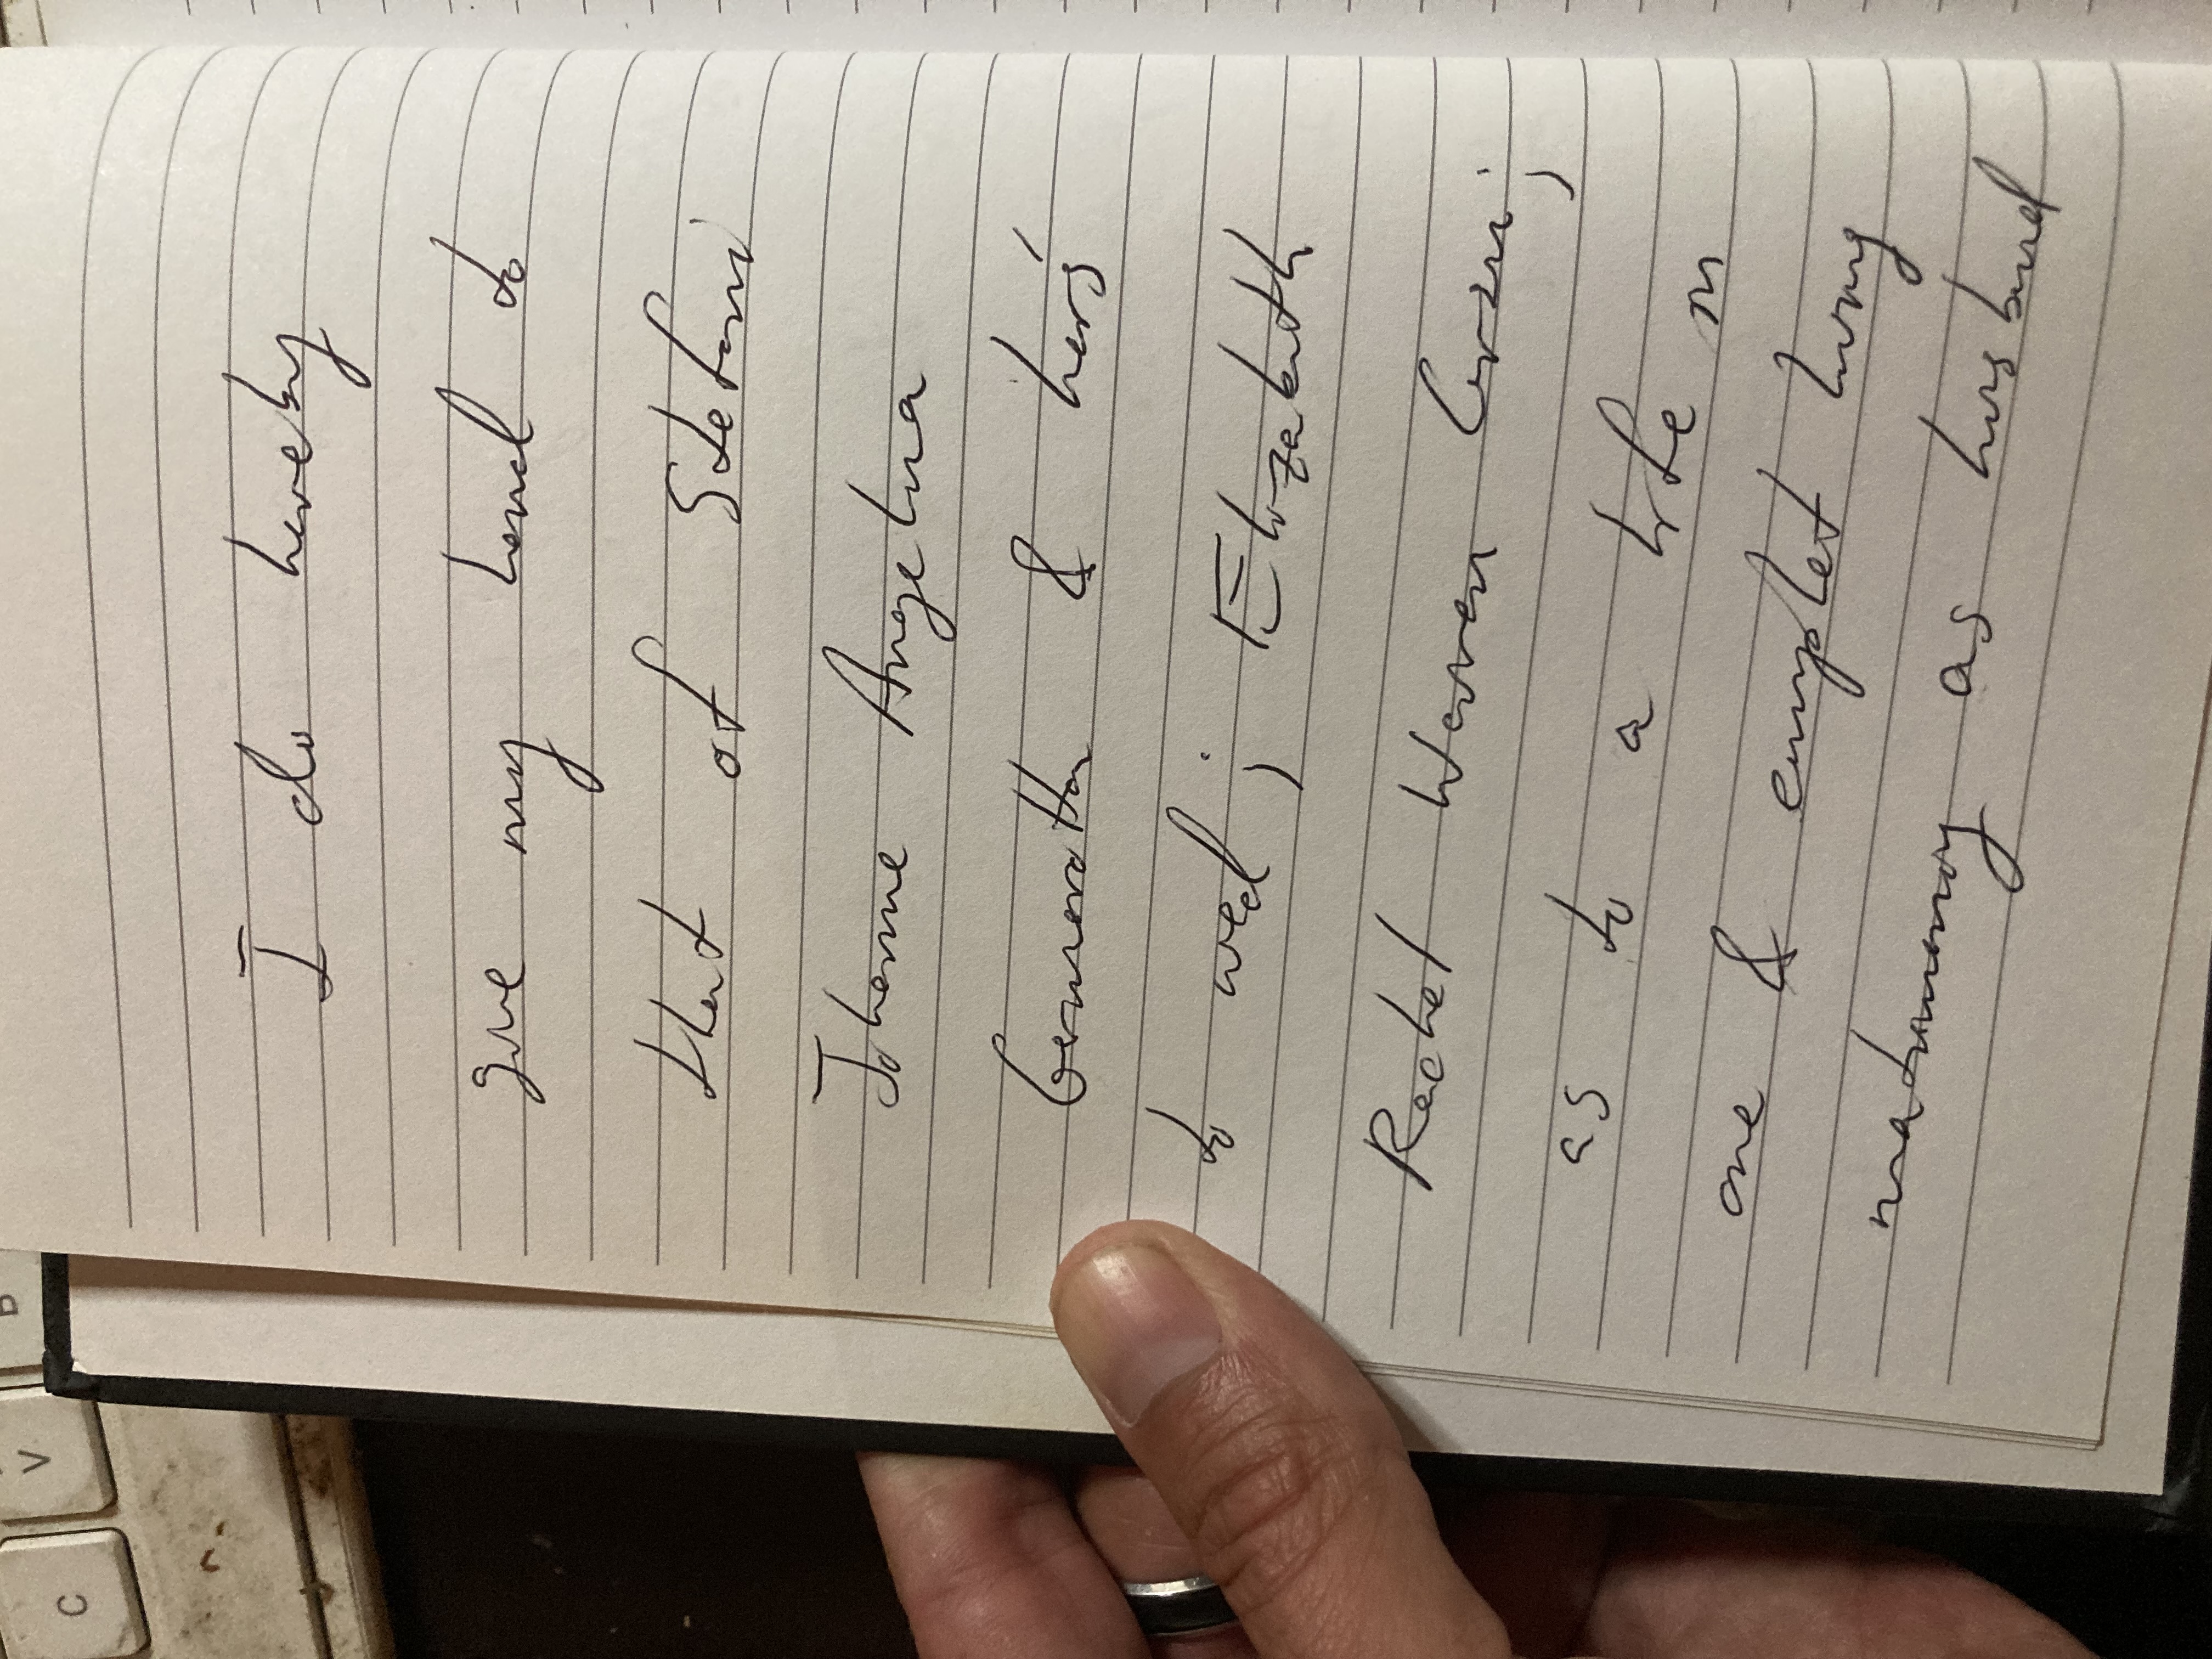 I do hereby
give my hand to
that of Stefani
Johanne Angelina
Germanotta & hers
to wed; Elizabeth
Rachel Woven
as to a life in
one & emplet living
matrimony as husband
C
V